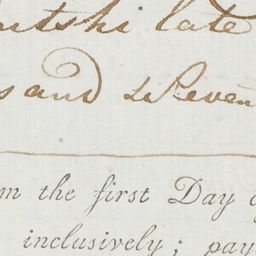 late
s and Seven
m the first Day o
inclusively; pay